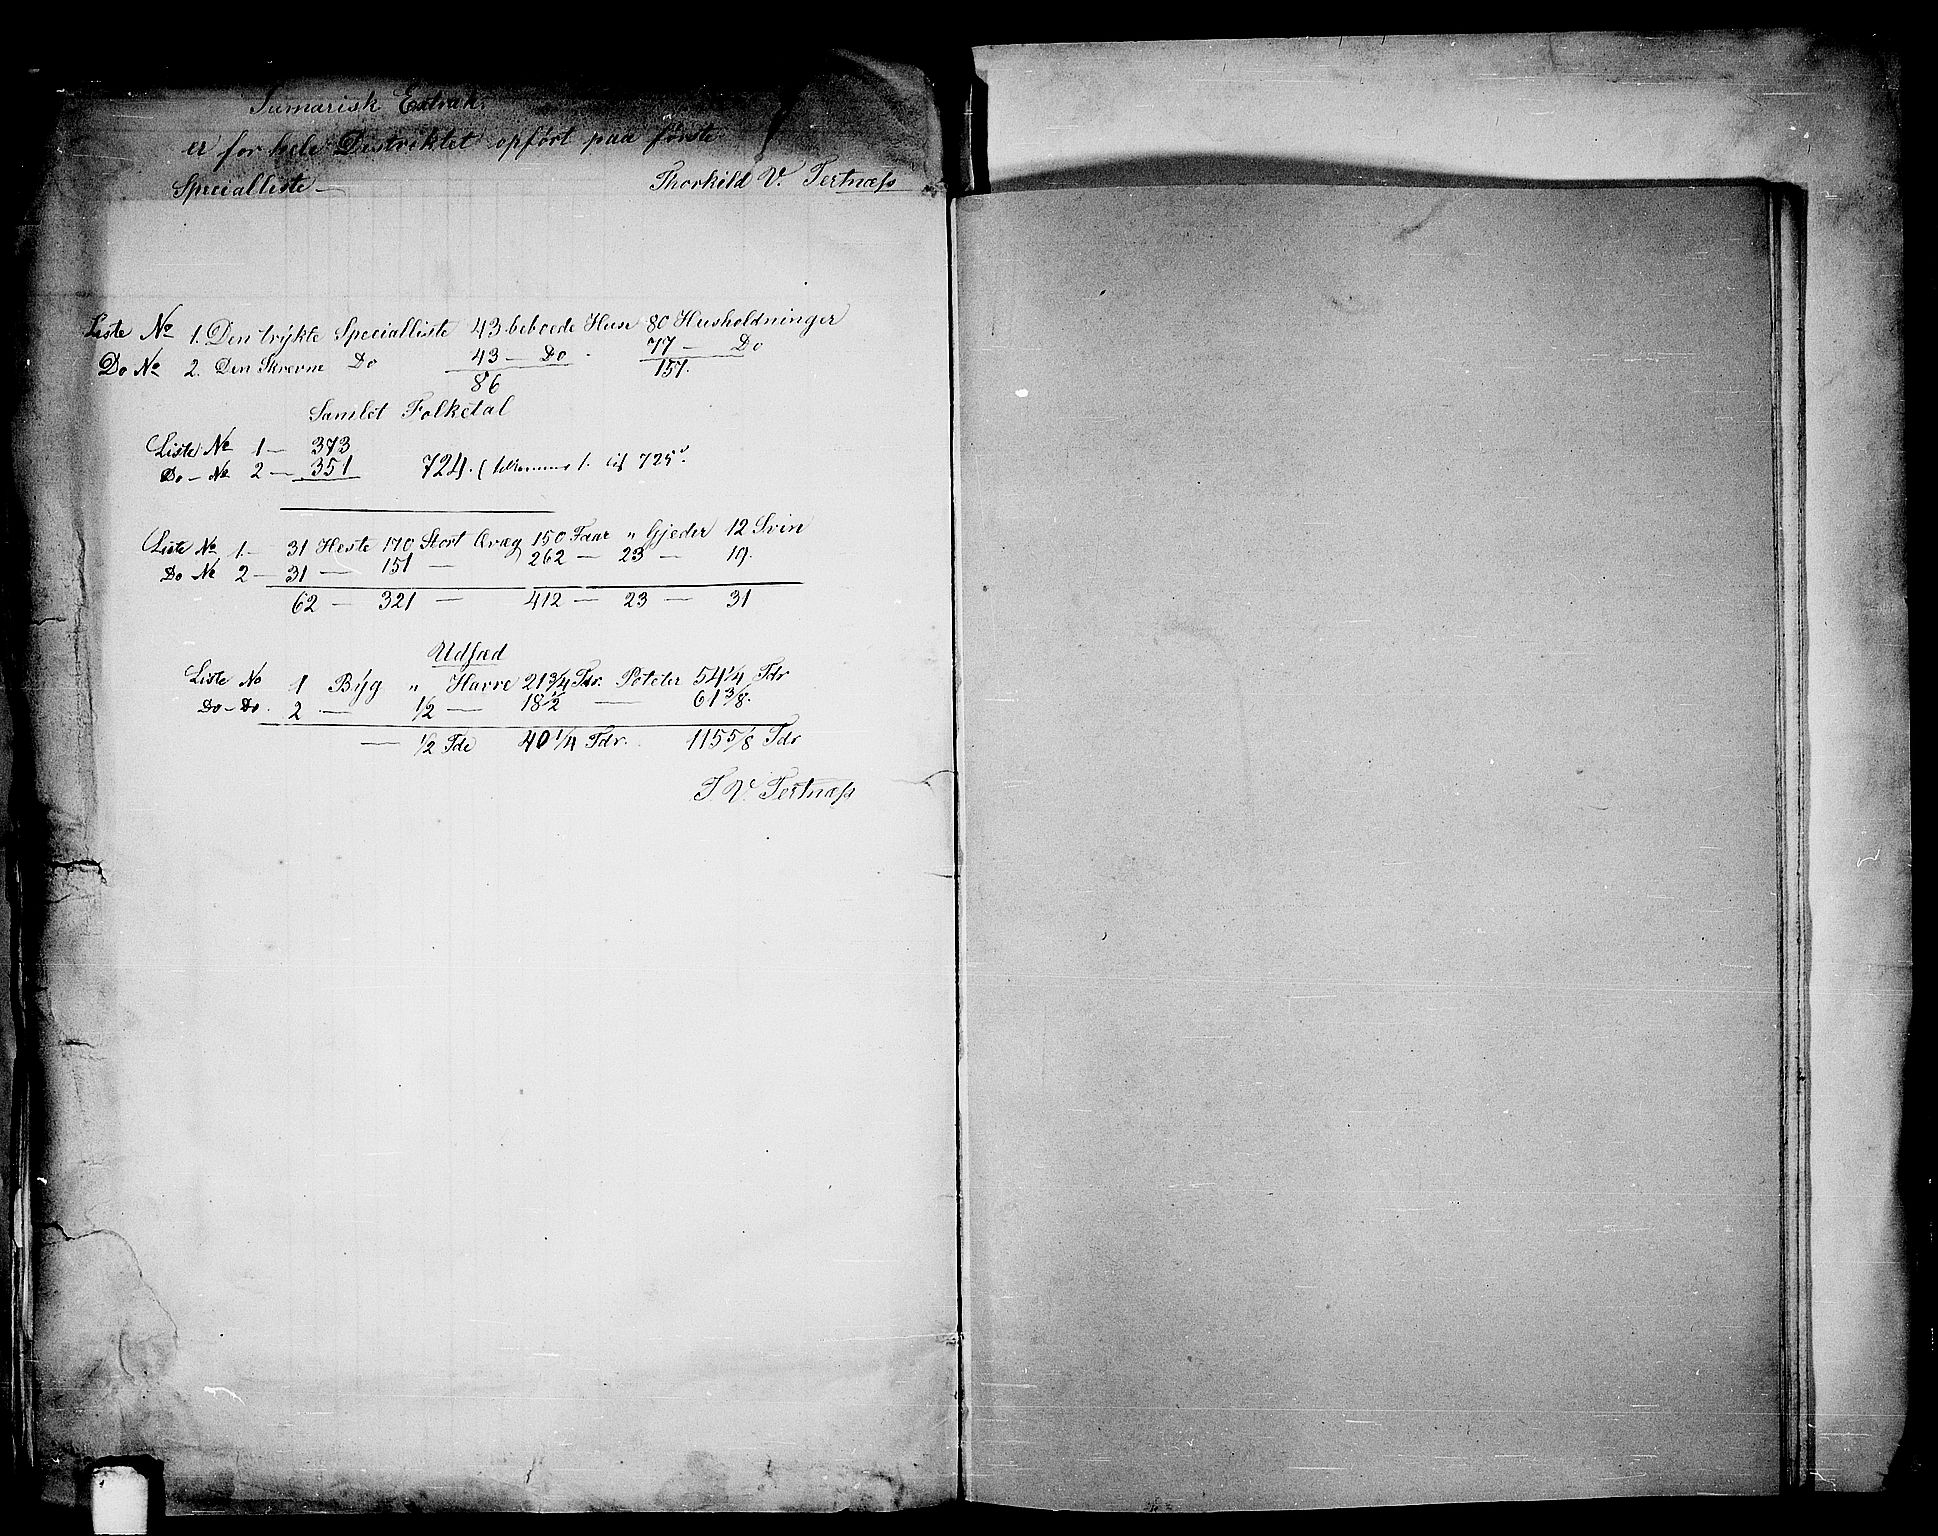 Sumarisk Extrakt
er for hele Distriktet opført paa første
Specialliste —
Thorkild V. Tertnæss
Liste No 1. Den trykte Specialliste 43 beboede Huse 80 Husholdninger
Do No 2. Den Skrevne Do 43 — Do . 77 — Do
86 157.
Samlet Folketal
Liste No 1 — 373
Do — No 2 — 351 724. ( 1. til 725
Liste No 1 — 31 Heste 170 Stort Qvæg 150 Faar " Gjeder 12 Svin
Do No 2 — 31 — 151 — 262 — 23 — 19.
62 — 321 — 412 — 23 — 31
Udsæd
Liste No 1 Byg " Havre 21 3/4 Tdr. Poteter 54 1/4 Tdr
Do — Do. 2 — 1/2 — 18 1/2 — 61 3/8.
— 1/2 Tde 40 1/4 Tdr. 115 5/8 Tdr
T. V. Tertnæss